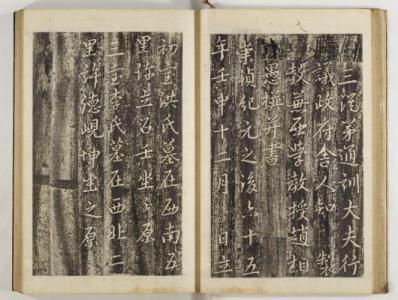 三從弟通訓大夫行
議政府舍人知 製
教兼西學教授趙相
愚撰并書
崇禎紀元之後六十五
年壬申十二月 日立
初室洪氏墓在西南五
里許立石壬坐之原
三室李氏墓在西北二
里許德峴坤坐之原